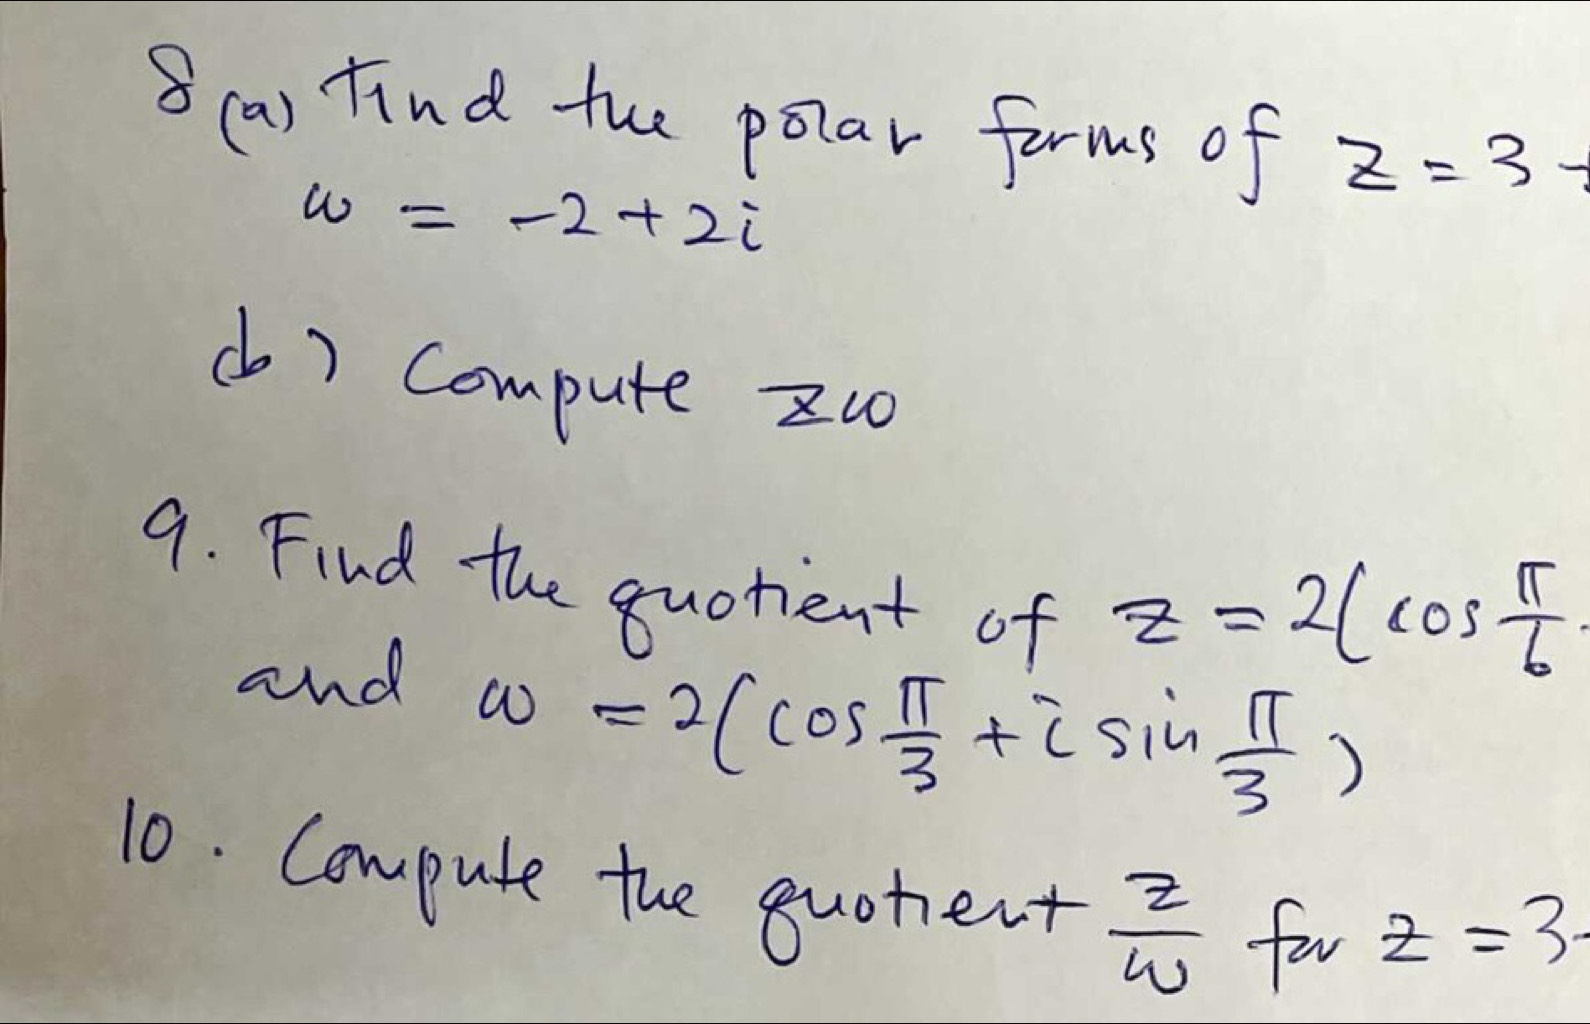 8 (a) Find the polar forms of z = 3 +
w = -2 + 2i
(b) Compute zw
9. Find the quotient of z = 2( cos π/6
and w = 2( cos π/3 + i sin π/3 )
10. Compute the quotient z/w for z = 3